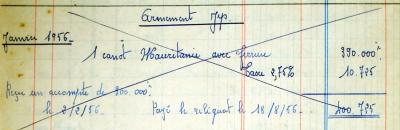 Armement Jyp.
Janvier 1956.
1 canot Mauritanie avec ferrure 390.000.
Taxe 2,75% 10.725
Reçu un acompte de 300.000.
le 2/2/56. Payé le reliquat le 18/8/56 400.725